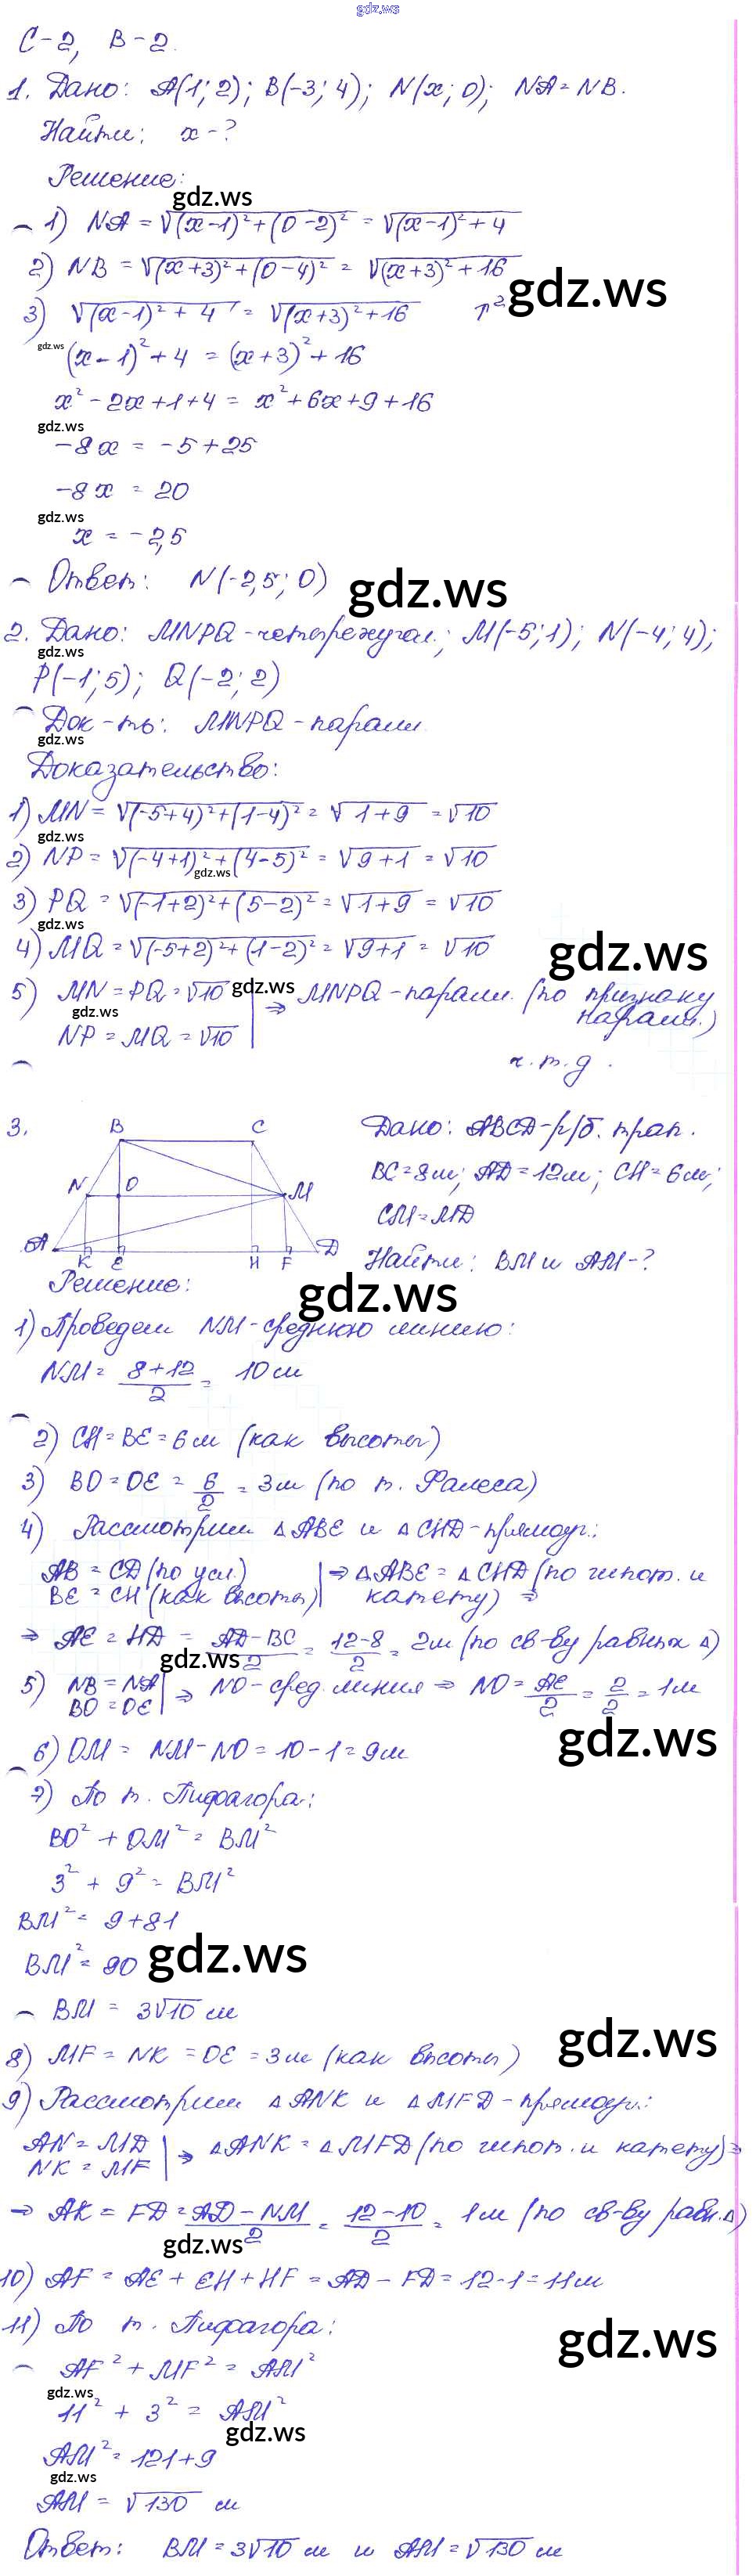 gdz.ws
С-2, В-2.
1. Дано: A(1; 2); B(-3; 4); N(x; 0); NA = NB.
Найти: x-?
Решение:
gdz.ws
1) NA = √(x-1)²+(0-2)² = √(x-1)²+4
2) NB = √(x+3)²+(0-4)² = √(x+3)²+16
gdz.ws
3) √(x-1)²+4 = √(x+3)²+16 ↑²
gdz.ws
(x-1)²+4 = (x+3)²+16
x²-2x+1+4 = x²+6x+9+16
gdz.ws
-8x = -5+25
-8x = 20
gdz.ws
x = -2,5
Ответ: N(-2,5; 0)
gdz.ws
2. Дано: MNPQ-четырехугол.; M(-5; 1); N(-4; 4);
gdz.ws
P(-1; 5); Q(-2; 2)
Док-ть: MNPQ-паралл.
gdz.ws
Доказательство:
1) MN = √(-5+4)²+(1-4)² = √1+9 = √10
gdz.ws
2) NP = √(-4+1)²+(4-5)² = √9+1 = √10
gdz.ws
3) PQ = √(-1+2)²+(5-2)² = √1+9 = √10
gdz.ws
4) MQ = √(-5+2)²+(1-2)² = √9+1 = √10
gdz.ws
5) MN = PQ = √10 | ⇒ MNPQ-паралл. (по признаку
gdz.ws
gdz.ws
NP = MQ = √10 паралл.)
ч.т.д.
3. B C Дано: ABCD-р/б. трап.
BC=8м; AD=12м; CH=6м;
N O M
CM=MD
A K E H F D Найти: BM и AM-?
Решение:
gdz.ws
1) Проведем NM-среднюю линию:
NM = 8+12/2 = 10 м
2) CH = BE = 6 м (как высоты)
3) BO = OE = 6/2 = 3 м (по т. Фалеса)
4) Рассмотрим △ABE и △CHD-прямоуг.:
AB = CD (по усл.) | ⇒ △ABE = △CHD (по гипот. и
BE = CH (как высоты) | катету) ⇒
⇒ AE = HD = AD-BC/2 = 12-8/2 = 2м (по св-ву равных △)
gdz.ws
5) NB = NA | ⇒ NO-сред. линия ⇒ NO = AE/2 = 2/2 = 1 м
BO = OE |
gdz.ws
6) OM = NM-NO = 10-1 = 9 м
7) По т. Пифагора:
BO² + OM² = BM²
3² + 9² = BM²
BM² = 9+81
BM² = 90
gdz.ws
BM = 3√10 м
gdz.ws
8) MF = NK = OE = 3 м (как высоты)
9) Рассмотрим △ANK и △MFD-прямоуг.:
AN = MD | ⇒ △ANK = △MFD (по гипот. и катету) ⇒
NK = MF |
⇒ AK = FD = AD-NM/2 = 12-10/2 = 1 м (по св-ву равн. △)
gdz.ws
10) AF = AE+EH+HF = AD-FD = 12-1 = 11 м
11) По т. Пифагора:
gdz.ws
AF² + MF² = AM²
gdz.ws
11² + 3² = AM²
gdz.ws
AM² = 121+9
gdz.ws
AM = √130 м
Ответ: BM = 3√10 м и AM = √130 м